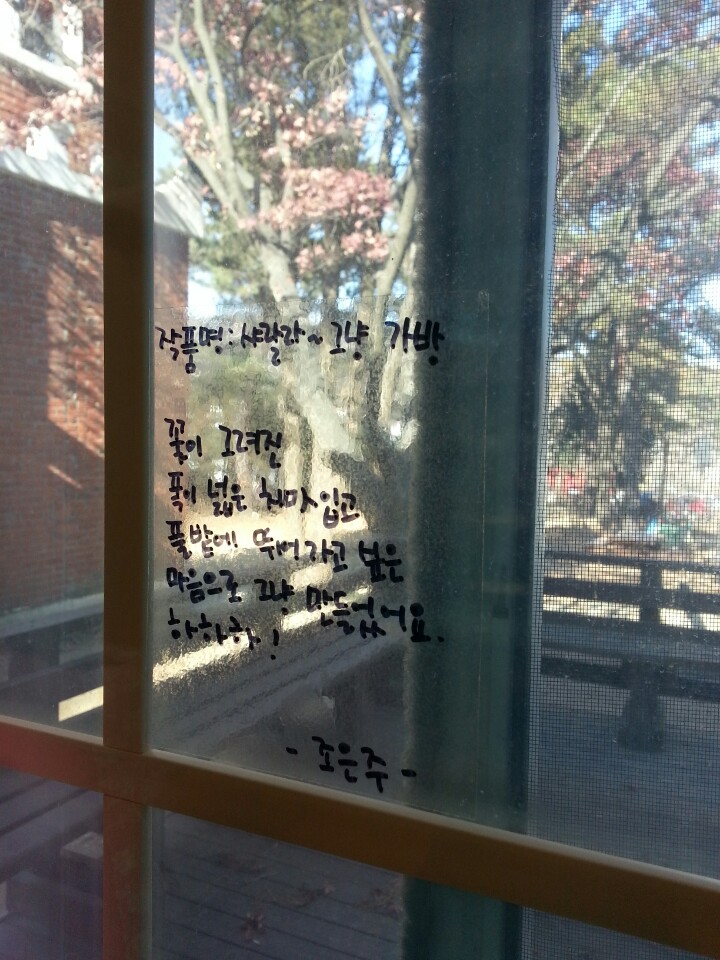 작품명: 샤랄라~ 그냥 가방
꽃이 그려진
폭이 넓은 치마 입고
풀밭에 뛰어가고 싶은
마음으로 그냥 만들었어요.
하하하!
- 조은주 -